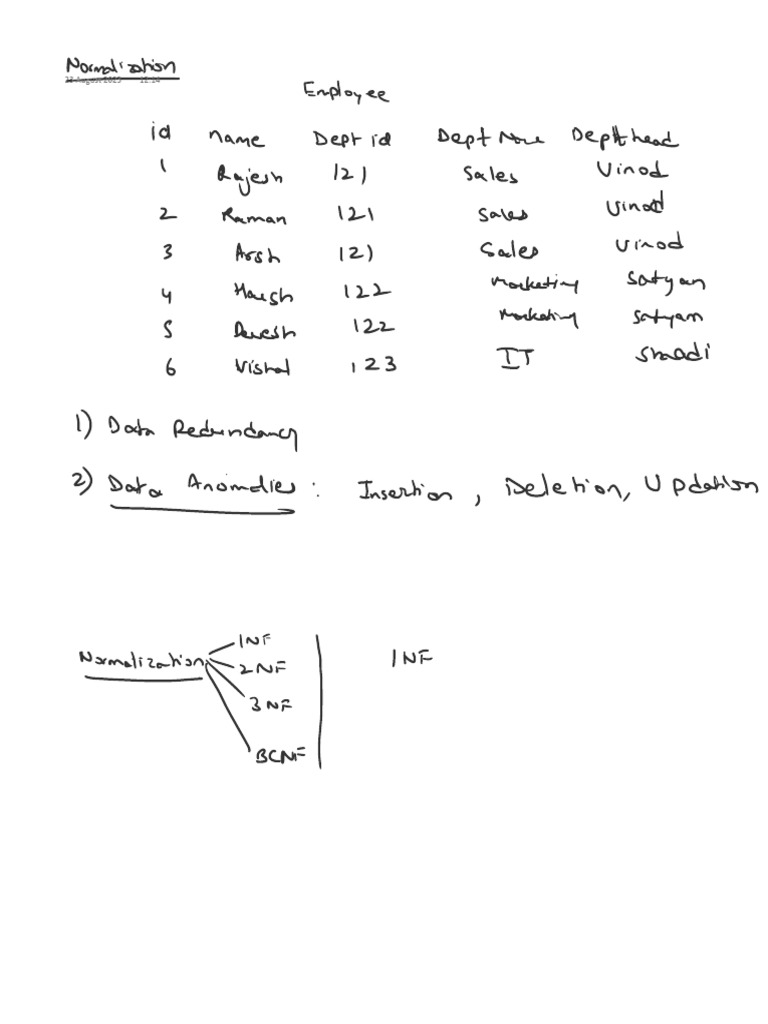 Normalization
Employee
id name Dept id Dept Name Dept head
1 Rajesh 121 Sales Vinod
2 Raman 121 Sales Vinod
3 Arsh 121 Sales Vinod
4 Harsh 122 Marketing Satyam
5 Devesh 122 Marketing Satyam
6 Vishal 123 IT
1) Data Redundancy
2) Data Anomolies : Insertion, Deletion, Updation
Normalization
1NF
2NF
3NF
BCNF
1NF